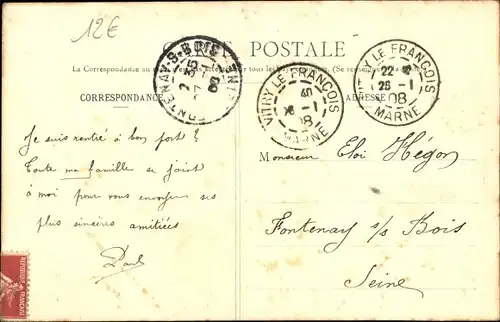 12€
CARTE POSTALE
La Correspondance au
CORRESPONDANCE
ADRESSE
FONTENAY-S-BOIS SEINE
VITRY LE FRANÇOIS
MARNE
VITRY LE FRANÇOIS
22
26 - 1
08
MARNE
Je suis rentré à bon port !
Toute ma famille se joint
à moi pour vous envoyer ses
plus sincères amitiées
Paul
Monsieur Eloi Hegon
Fontenay s/s Bois
Seine